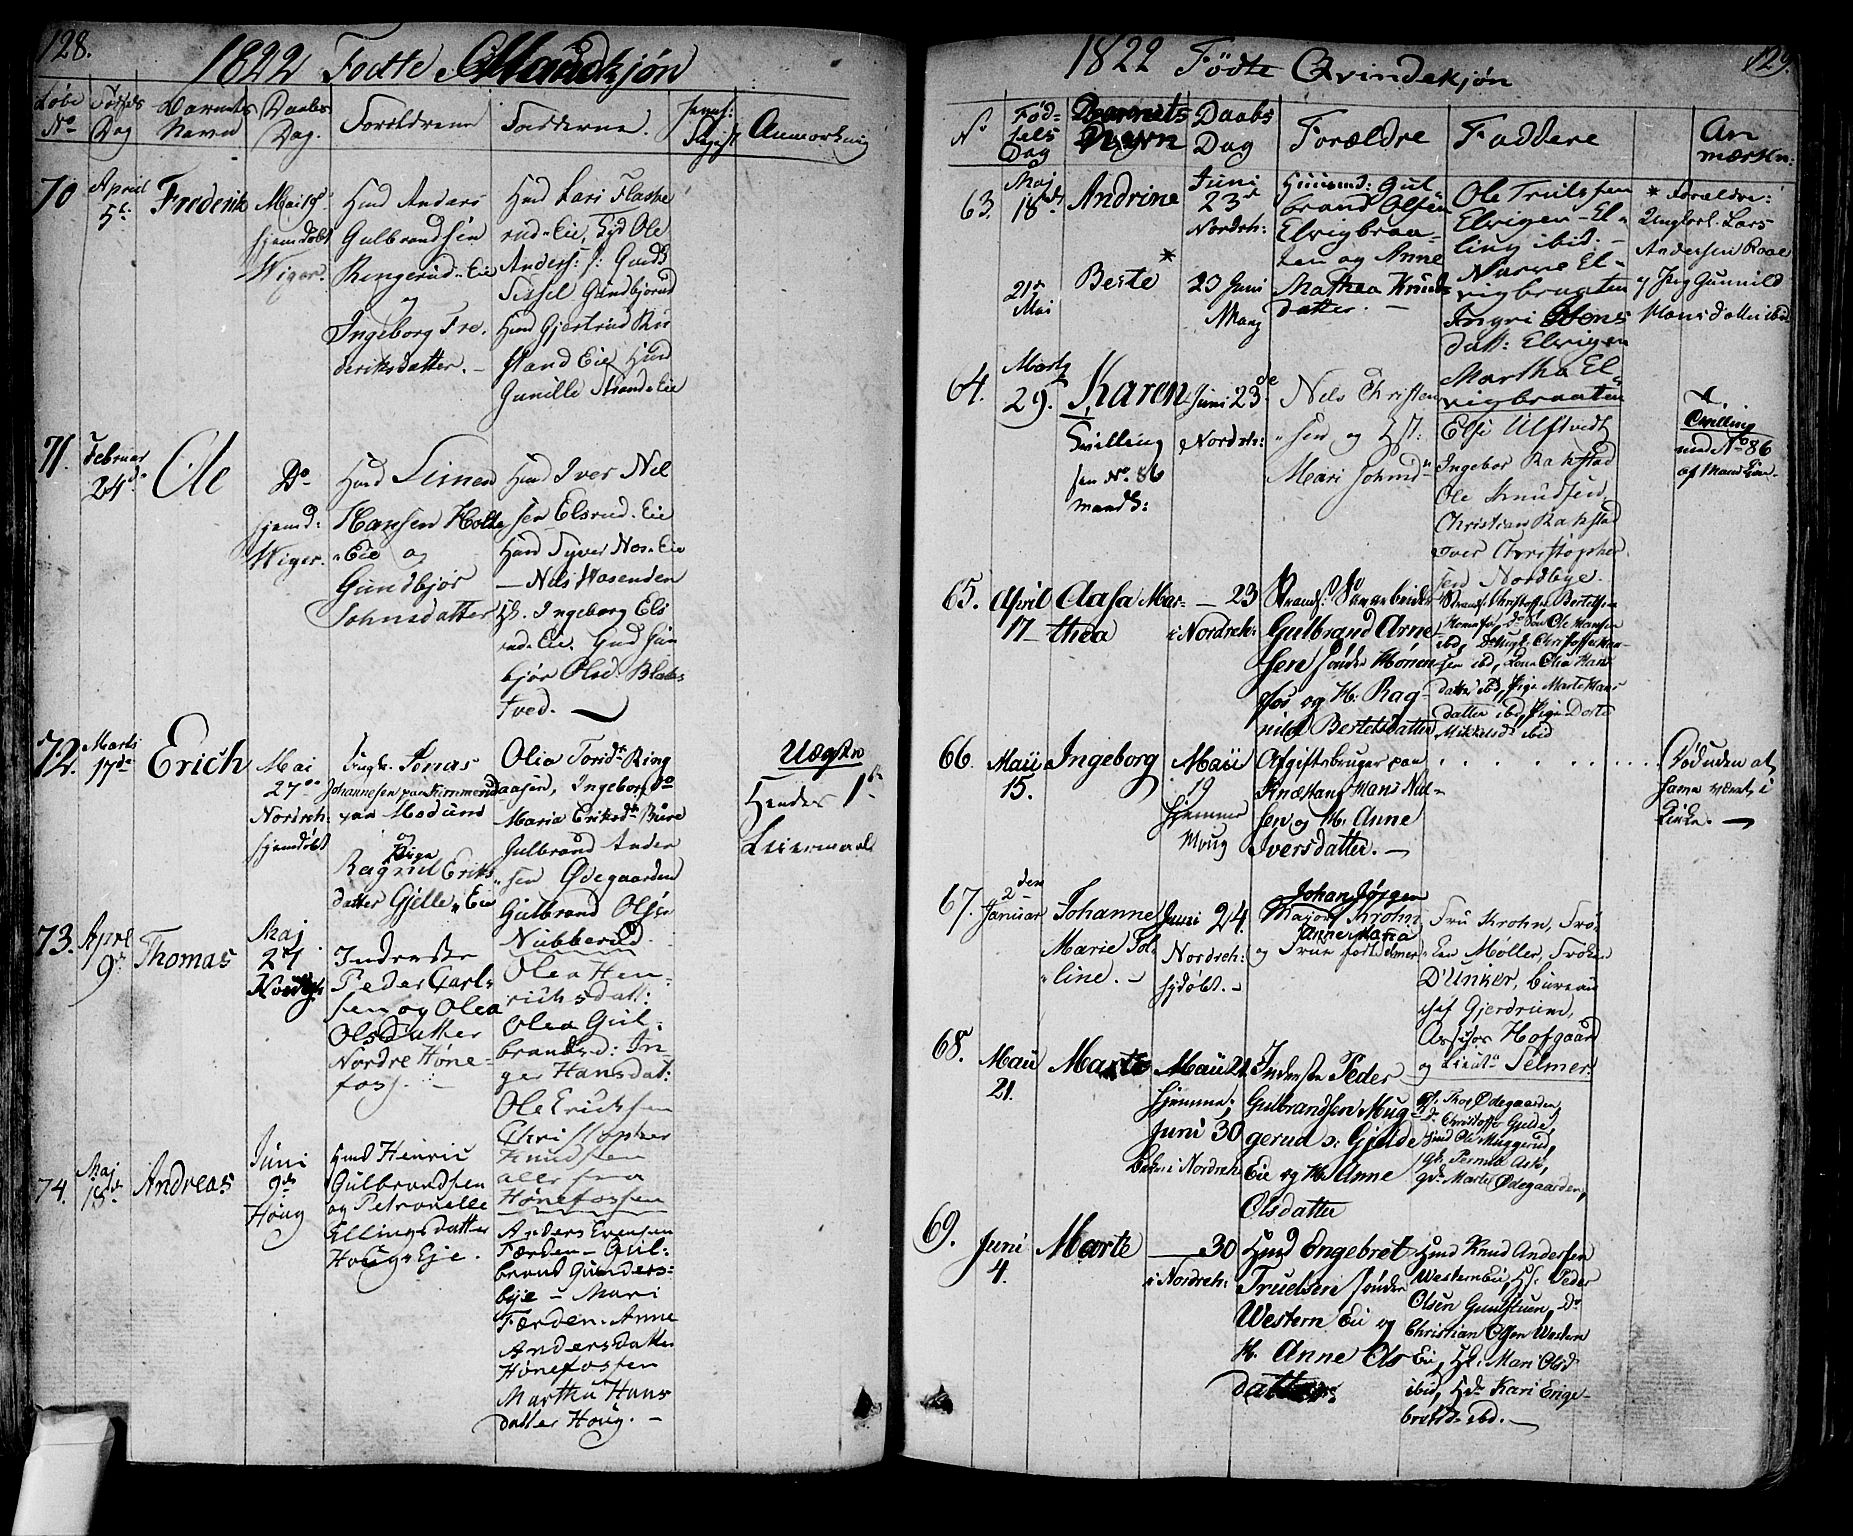 128.
1822 Fødte Mandkjøn
Løbe No
Fødsels Dag
Barnets Navn
Daabs Dag.
Forældrene
Fadderne.
Anmærkning
70
April 5te
Frederik
Mai
hjemdøbt
Wiger.
Husd Anders
Gulbrandsen
Ringerud Eie
og
Ingeborg Fre-
deriksdatter. -
Husd Lars Flaske
rud Eie, Gjd Ole
Anders:
Sissel Gundbjørrud
Husd Gjertrud
Eie Husd
Gunille Strand Eie
71.
Februar
24de
Ole
Do
hjemd:
Wiger.
Husd Simen
Hansen Holte
Eie og
Gundbjør
Johnsdatter
Husd Iver Nil
sen Elsrud Eie
Husd Syver Næs Eie
- Nils Hasenden
Ingeborg Els
rud Eie. Husd Gun
bjør Olsd. Blaks
tved. -
72.
Marts
17de
Erich
Mai
27de
Nordreh:
hjemdøbt
Ungk. Jonas
Johannesen paa
paa Modum
og
Pige
Ragnil Eriks
datter Gjelle Eie
Olia Tord. Ring
aasen, Ingeborg Do
Maria Eriksdt Bure
Gulbrand Ander
sen Ødegaarden
Gulbrand Olsen
Nubberud.
Uægte
Hendes 1ste
Leiermaal
73.
Apr.
9de
Thomas
Maj
27
Nordreh
Inderste
Peder Carl-
sen og Olea
Olsdatter
Nordre Høne-
foss. -
Olea Hen-
richsdatt:
Olea Gul-
brandsd: In-
ger Hansdat:
Ole Ericksen
Christopher
Knudsen
alle fra
Hønefossen
74.
Maj
18de
Andreas
Juni
9de
Houg
Husd Henric
Gulbrandsen
og Petronelle
Ellingsdatter
Houg Eje.
Anders Evensen
Færden - Gul-
brand Gunders-
bye - Mari
Færden. Anne
Andersdatter
Hønefossen
Martha Hans
datter Houg. -
129.
1822 Fødte Qvindekjøn
No
Fød-
sels
Dag
Barnets
Navn
Daabs
Dag
Forældre
Faddere
An
mærkn:
63.
Maj
18de
Andrine
Juni
23de
Nordreh:
Huusmd: Gul-
brand Olsen
Elvigbraa-
ten og Anne
Mathea Knuds
datter. -
Ole Trulssen
Elvigen - El-
ling ibid. -
Narve El-
vigbraaten
Ingri Olens
datt: Elvigen
Martha El-
vigbraaten
21de
Mai
Berte *
23 Juni
Haug
* Forældre:
Ungkarl Lars
Andersen Raae
og Pig Gunnild
Hansdatter ibid
64.
Marts
29.
Karen
Tvilling
sen No. 86
mands:
Juni 23de
Nordreh:
Nils Christen
sen og Hst:
Mari Johnsd
Else Ulftvedt
Ingebor Rakstad
Ole Knudsen
Christian Rakstad
Iver Christopher
sen Nordbye.
Tvilling
med No 86
af Mandkiøn
65.
April
17
Aasa Mar-
thea
- 23
i Nordreh:
Gulbrand Arne
sen søndre Hønen
fos og H. Rag-
nild Bertelsdatter
Christoffer Bertelsen
Hønefos, do Søn Ole Hansen
ibid, do Ungk. Christoffer Han-
sen ibd, Kone Olia Hans
datter ibd, Pige Marte Hans
datter ibd, Pige Dorte
Mikkelsd. ibid
66.
Maii
15.
Ingeborg
Maii
19
hjemme
Houg
Afgiftsbruger paa
Knæstang Hans Niel-
sen og H. Anne
Iversdatter. -
. . . . . . . . .
Død uden at
have været i
Kirke. -
67.
2den
Januar
Johanne
Marie Jo-
line. -
Juni 24
Nordreh:
hjdøbt. -
Johan Jørgen
Major Krohn
Anne Maria
og Frue født
Fru Krohn, Frø-
ken Møller, Frøken
D'Unker, Bureau
chef Gjerdrum,
Assessor Hofgaard
og Lieut. Selmer.
68.
Maii
21.
Marte
Maii 21
hjemme,
Juni 30
i Nordreh
Inderste Peder
Gulbrandsen Mug-
gerud s: Gjelde
Eie og H. Anne
Olsdatter
Ødegaarden,
do Christoffer Gjelde,
Husd Ole Muggerud,
Pernille Ask,
gdk Marte Ødegaarden,
69.
Juni
4.
Marte
- 30
i Nordreh:
Husd Engebret
Truelsen søndre
Western Eie og
H. Anne Ols
datter
Husd Knud Andersen
Western Eie, Hs: Peder
Olsen Gunstuen, do
Christian Olsen Western
Eie, Hk: Mari Olsd
ibid, Hdk Kari Enge-
bretsd. ibd. -